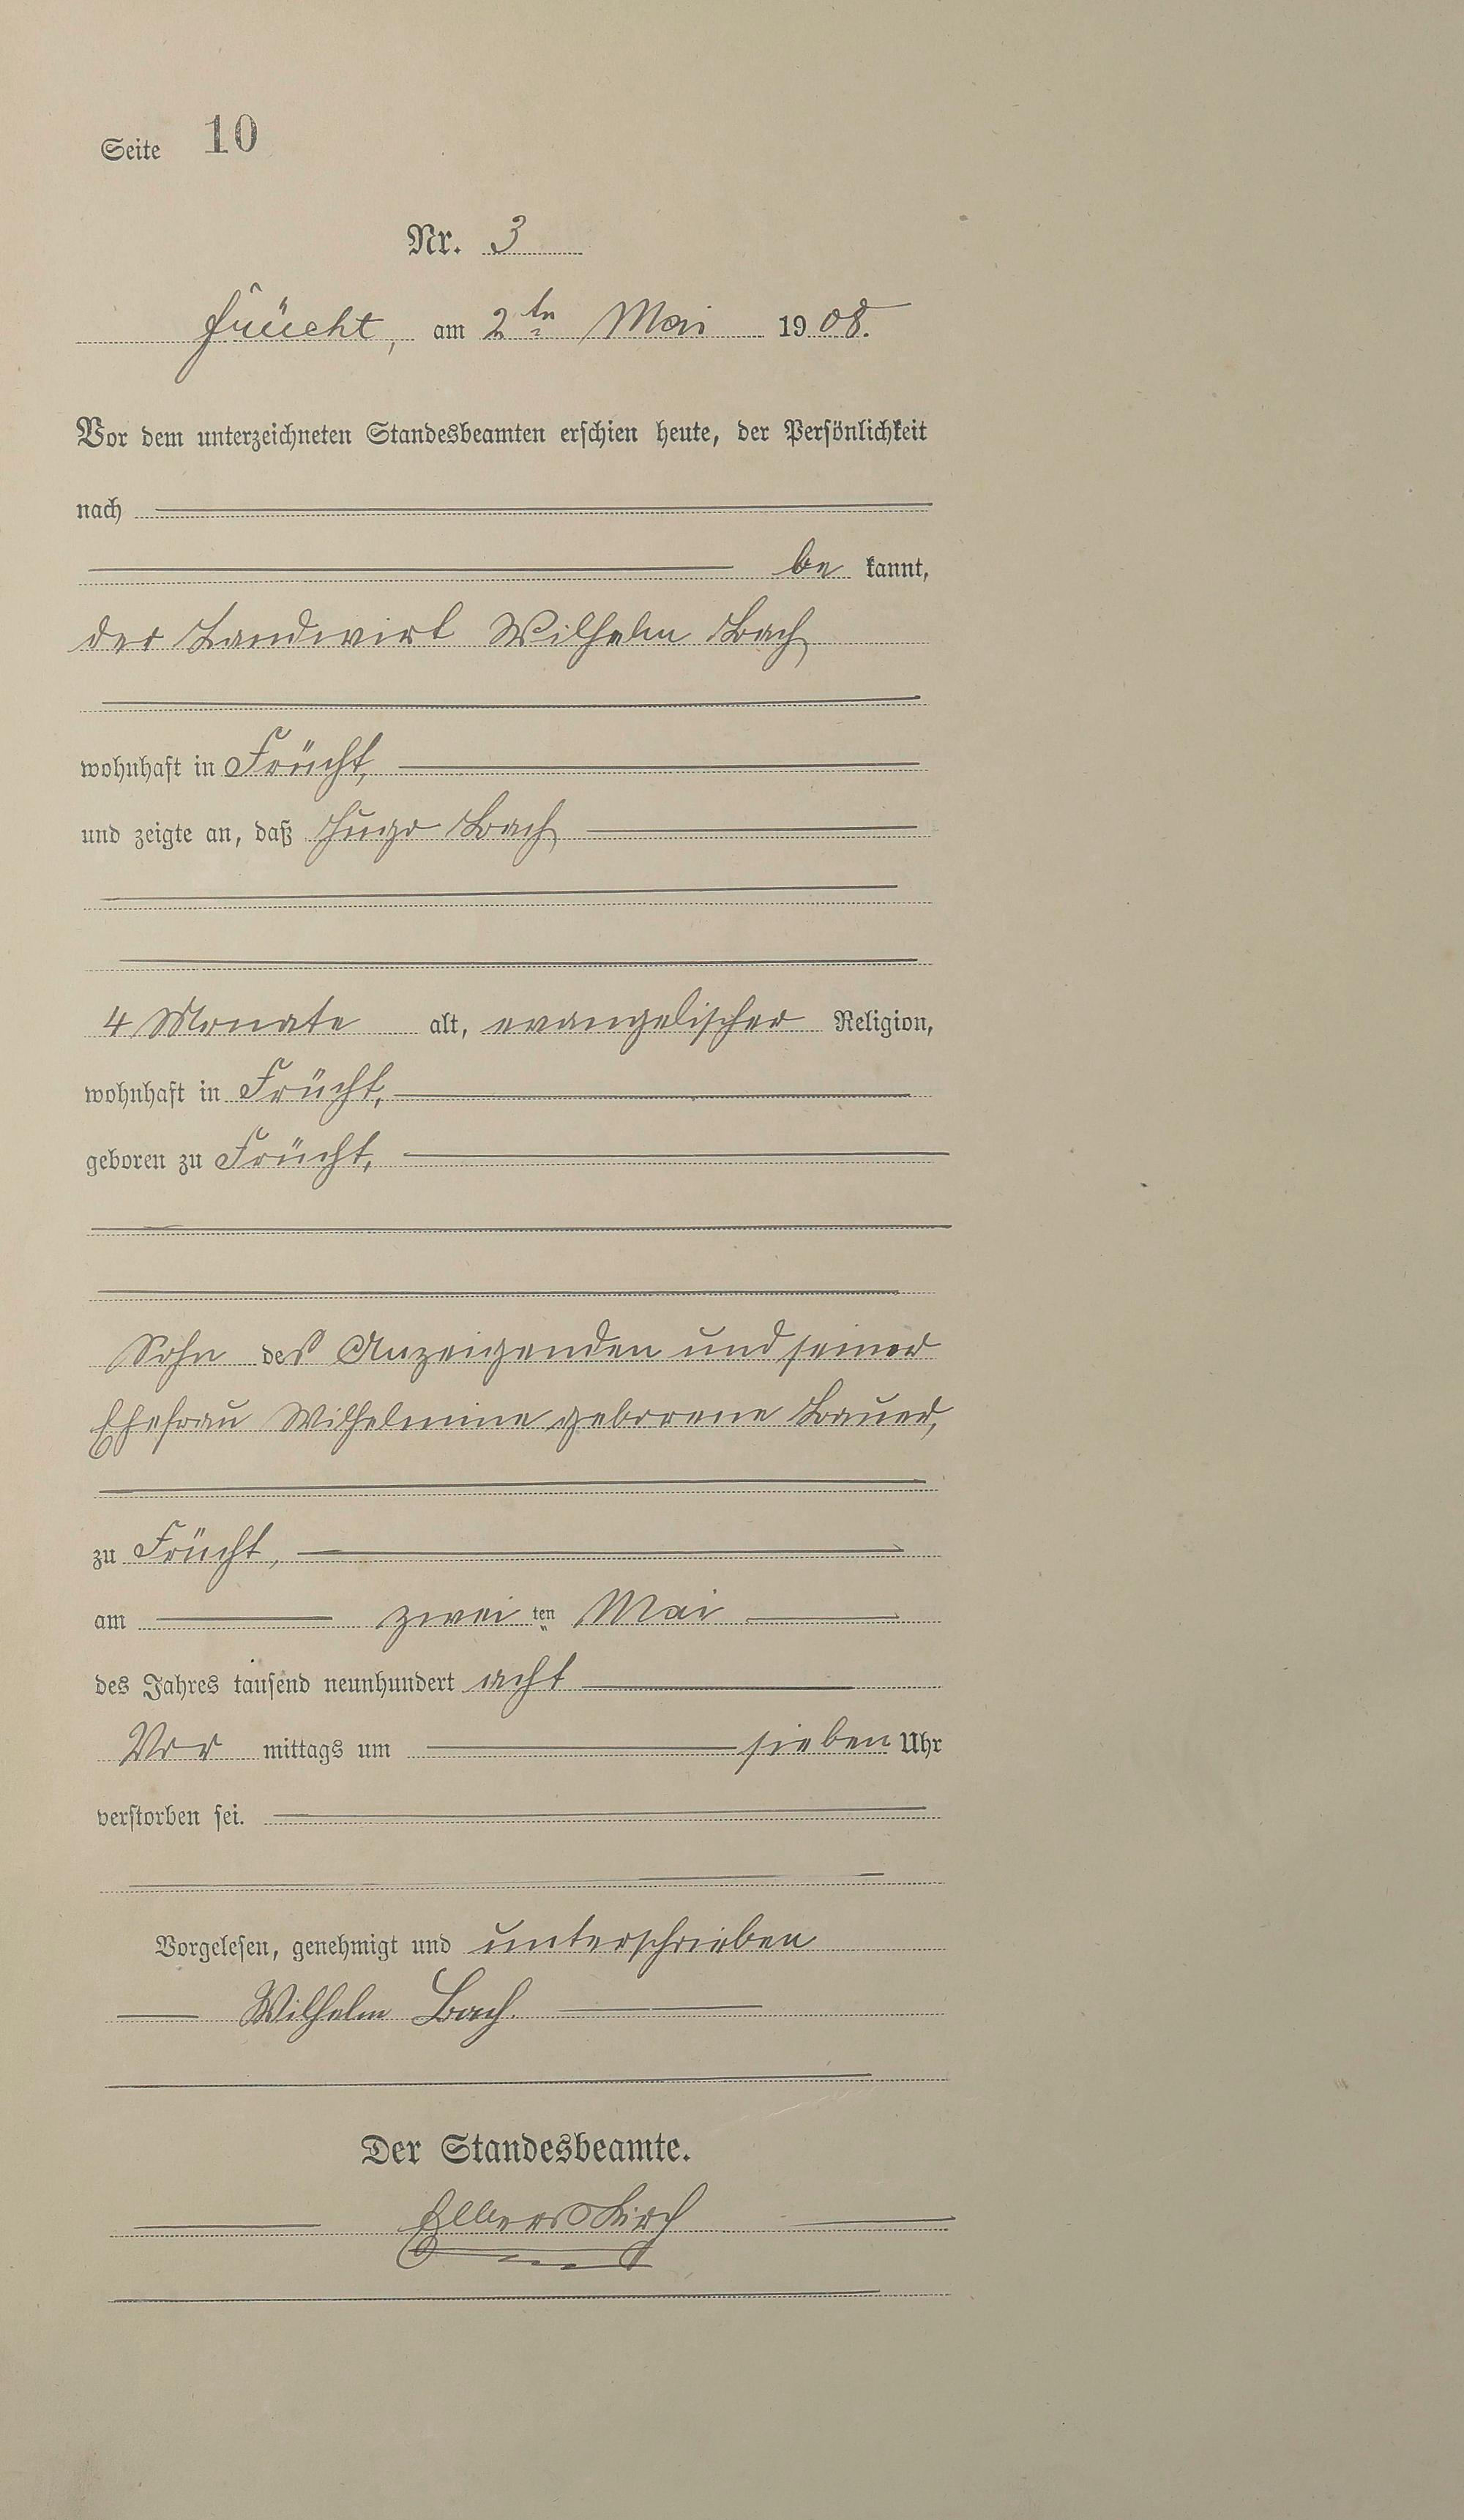 Seite 10
Nr. 3
Früecht, am 2ten Mai 1908.
Vor dem unterzeichneten Standesbeamten erschien heute, der Persönlichkeit
nach
be kannt,
der Landwirt Wilhelm Bach
wohnhaft in Frücht,
und zeigte an, daß Hugo Bach
4 Monate alt, evangelischer Religion,
wohnhaft in Frücht,
geboren zu Frücht,
Sohn des Anzeigenden und seiner
Ehefrau Wilhelmine geborene Bauer,
zu Frücht,
am zwei ten Mai
des Jahres tausend neunhundert acht
Vor mittags um sieben Uhr
verstorben sei.
Vorgelesen, genehmigt und unterschrieben
Wilhelm Bach.
Der Standesbeamte.